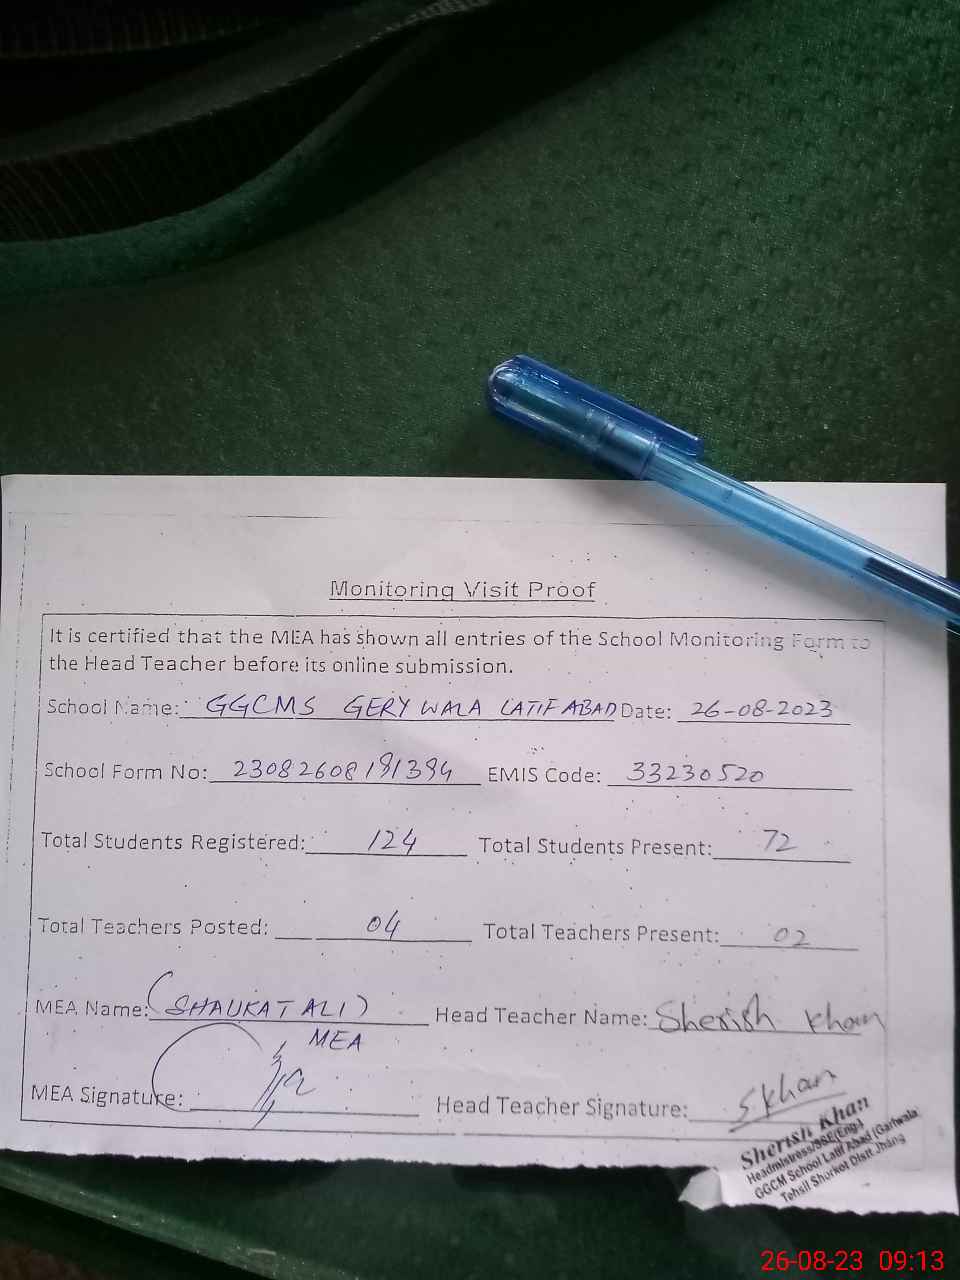 Monitoring Visit Proof
It is certified that the MEA has shown all entries of the School Monitoring Form to
the Head Teacher before its online submission.
School Name: GGCMS GERY WALA LATIF ABAD Date: 26-08-2023
School Form No: 23082608191394 EMIS Code: 33230520
Total Students Registered: 124 Total Students Present: 72
Total Teachers Posted: 04 Total Teachers Present: 02
MEA Name: (SHAUKAT ALI) Head Teacher Name: Sherish Khan
MEA
MEA Signature: Head Teacher Signature: S Khan
Sherish Khan
Headmistress/SSE(Eng)
GGCM School Latif Abad (Garhwala
Tehsil Shorkot Distt Jhang
26-08-23 09:13